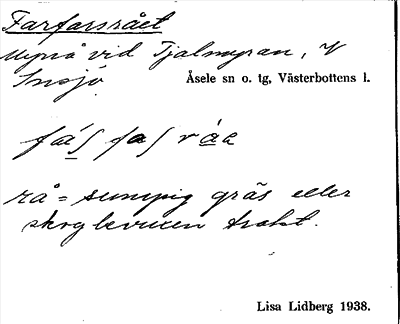 Farfarsrået
Myrå vid Tjalmyran, V
Insjö
Åsele sn o. tg, Västerbottens l.
rå = sumpig gräs eller
skogbevuxen trakt.
Lisa Lidberg 1938.